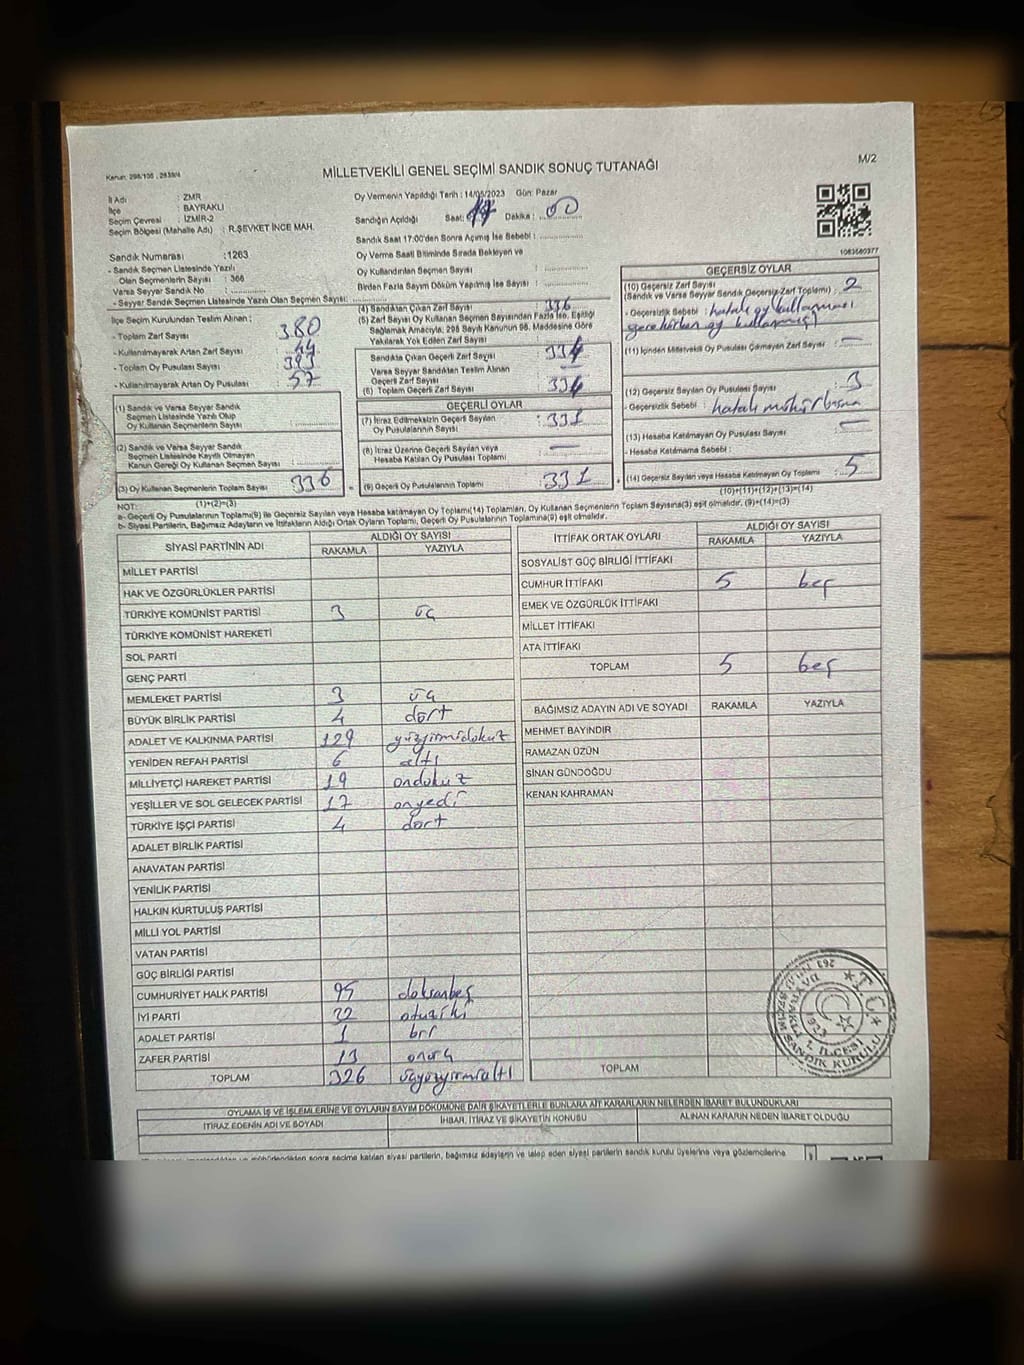 MİLLETVEKİLİ GENEL SEÇİMİ SANDIK SONUÇ TUTANAĞI
M/2
İl Adı : ZMR
İlçe : BAYRAKLI
Seçim Çevresi : İZMİR-2
Seçim Bölgesi (Mahalle Adı) : R.ŞEVKET İNCE MAH.
Oy Vermenin Yapıldığı Tarih : 14/05/2023 Gün: Pazar
Sandığın Açıldığı Saat: 17 Dakika : 00
Sandık Saat 17:00'den Sonra Açılmış İse Sebebi :
Oy Verme Saati Bitiminde Sırada Bekleyen ve
Oy Kullandırılan Seçmen Sayısı :
Birden Fazla Sayım Döküm Yapılmış İse Sayısı :
Sandık Numarası : 1263
- Sandık Seçmen Listesinde Yazılı
Olan Seçmenlerin Sayısı : 366
Varsa Seyyar Sandık No :
- Seyyar Sandık Seçmen Listesinde Yazılı Olan Seçmen Sayısı:
İlçe Seçim Kurulundan Teslim Alınan :
- Toplam Zarf Sayısı : 380
- Kullanılmayarak Artan Zarf Sayısı : 44
- Toplam Oy Pusulası Sayısı
- Kullanılmayarak Artan Oy Pusulası : 57
(1) Sandık ve Varsa Seyyar Sandık
Seçmen Listesinde Yazılı Olup
Oy Kullanan Seçmenlerin Sayısı
(2) Sandık ve Varsa Seyyar Sandık
Seçmen Listesinde Kayıtlı Olmayan
Kanun Gereği Oy Kullanan Seçmen Sayısı :
(3) Oy Kullanan Seçmenlerin Toplam Sayısı 336
(1)+(2)=(3)
(4) Sandıktan Çıkan Zarf Sayısı : 336
(5) Zarf Sayısı Oy Kullanan Seçmen Sayısından Fazla İse, Eşitliği
Sağlamak Amacıyla; 298 Sayılı Kanunun 98. Maddesine Göre
Yakılarak Yok Edilen Zarf Sayısı :
Sandıkta Çıkan Geçerli Zarf Sayısı : 334
Varsa Seyyar Sandıktan Teslim Alınan
Geçerli Zarf Sayısı : —
(6) Toplam Geçerli Zarf Sayısı : 334
GEÇERLİ OYLAR
(7) İtiraz Edilmeksizin Geçerli Sayılan
Oy Pusulalarının Sayısı : 331
(8) İtiraz Üzerine Geçerli Sayılan veya
Hesaba Katılan Oy Pusulası Toplamı : —
(9) Geçerli Oy Pusulalarının Toplamı : 331
GEÇERSİZ OYLAR
(10) Geçersiz Zarf Sayısı
(Sandık ve Varsa Seyyar Sandık Geçersiz Zarf Toplamı) : 2
- Geçersizlik Sebebi : hatalı oy kullanması
gerekirken oy kullanmış
(11) İçinden Milletvekili Oy Pusulası Çıkmayan Zarf Sayısı : —
(12) Geçersiz Sayılan Oy Pusulası Sayısı : 3
- Geçersizlik Sebebi : hatalı mühür basma
(13) Hesaba Katılmayan Oy Pusulası Sayısı : —
- Hesaba Katılmama Sebebi :
(14) Geçersiz Sayılan veya Hesaba Katılmayan Oy Toplamı : 5
(10)+(11)+(12)+(13)=(14)
NOT:
a- Geçerli Oy Pusulalarının Toplamı(9) ile Geçersiz Sayılan veya Hesaba katılmayan Oy Toplamı(14) Toplamları, Oy Kullanan Seçmenlerin Toplam Sayısına(3) eşit olmalıdır. (9)+(14)=(3)
b- Siyasi Partilerin, Bağımsız Adayların ve İttifakların Aldığı Ortak Oyların Toplamı, Geçerli Oy Pusulalarının Toplamına(9) eşit olmalıdır.
SİYASİ PARTİNİN ADI ALDIĞI OY SAYISI
RAKAMLA YAZIYLA
MİLLET PARTİSİ
HAK VE ÖZGÜRLÜKLER PARTİSİ
TÜRKİYE KOMÜNİST PARTİSİ 3 üç
TÜRKİYE KOMÜNİST HAREKETİ
SOL PARTİ
GENÇ PARTİ
MEMLEKET PARTİSİ 3 üç
BÜYÜK BİRLİK PARTİSİ 4 dört
ADALET VE KALKINMA PARTİSİ 129 yüzyirmidokuz
YENİDEN REFAH PARTİSİ 6 altı
MİLLİYETÇİ HAREKET PARTİSİ 19 ondokuz
YEŞİLLER VE SOL GELECEK PARTİSİ 17 onyedi
TÜRKİYE İŞÇİ PARTİSİ 4 dört
ADALET BİRLİK PARTİSİ
ANAVATAN PARTİSİ
YENİLİK PARTİSİ
HALKIN KURTULUŞ PARTİSİ
MİLLİ YOL PARTİSİ
VATAN PARTİSİ
GÜÇ BİRLİĞİ PARTİSİ
CUMHURİYET HALK PARTİSİ 95 doksanbeş
İYİ PARTİ 32 otuziki
ADALET PARTİSİ 1 bir
ZAFER PARTİSİ 13 onüç
TOPLAM 326 üçyüzyirmialtı
İTTİFAK ORTAK OYLARI ALDIĞI OY SAYISI
RAKAMLA YAZIYLA
SOSYALİST GÜÇ BİRLİĞİ İTTİFAKI
CUMHUR İTTİFAKI 5 beş
EMEK VE ÖZGÜRLÜK İTTİFAKI
MİLLET İTTİFAKI
ATA İTTİFAKI
TOPLAM 5 beş
BAĞIMSIZ ADAYIN ADI VE SOYADI RAKAMLA YAZIYLA
MEHMET BAYINDIR
RAMAZAN ÜZÜN
SİNAN GÜNDOĞDU
KENAN KAHRAMAN
TOPLAM
OYLAMA İŞ VE İŞLEMLERİNE VE OYLARIN SAYIM DÖKÜMÜNE DAİR ŞİKAYETLERLE BUNLARA AİT KARARLARIN NELERDEN İBARET BULUNDUKLARI
İTİRAZ EDENİN ADI VE SOYADI İHBAR, İTİRAZ VE ŞİKAYETİN KONUSU ALINAN KARARIN NEDEN İBARET OLDUĞU